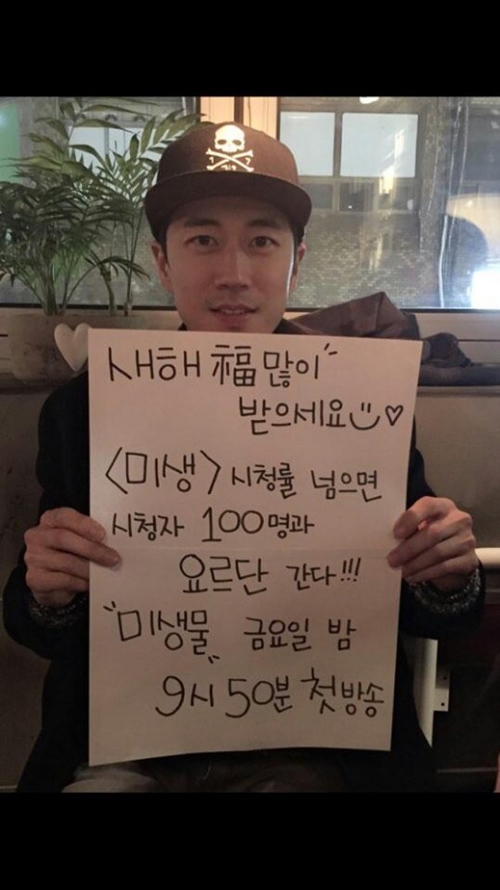 새해 福 많이~
받으세요 ツ ♡
<미생> 시청률 넘으면
시청자 100명과
요르단 간다!!!
"미생물" 금요일 밤
9시 50분 첫방송